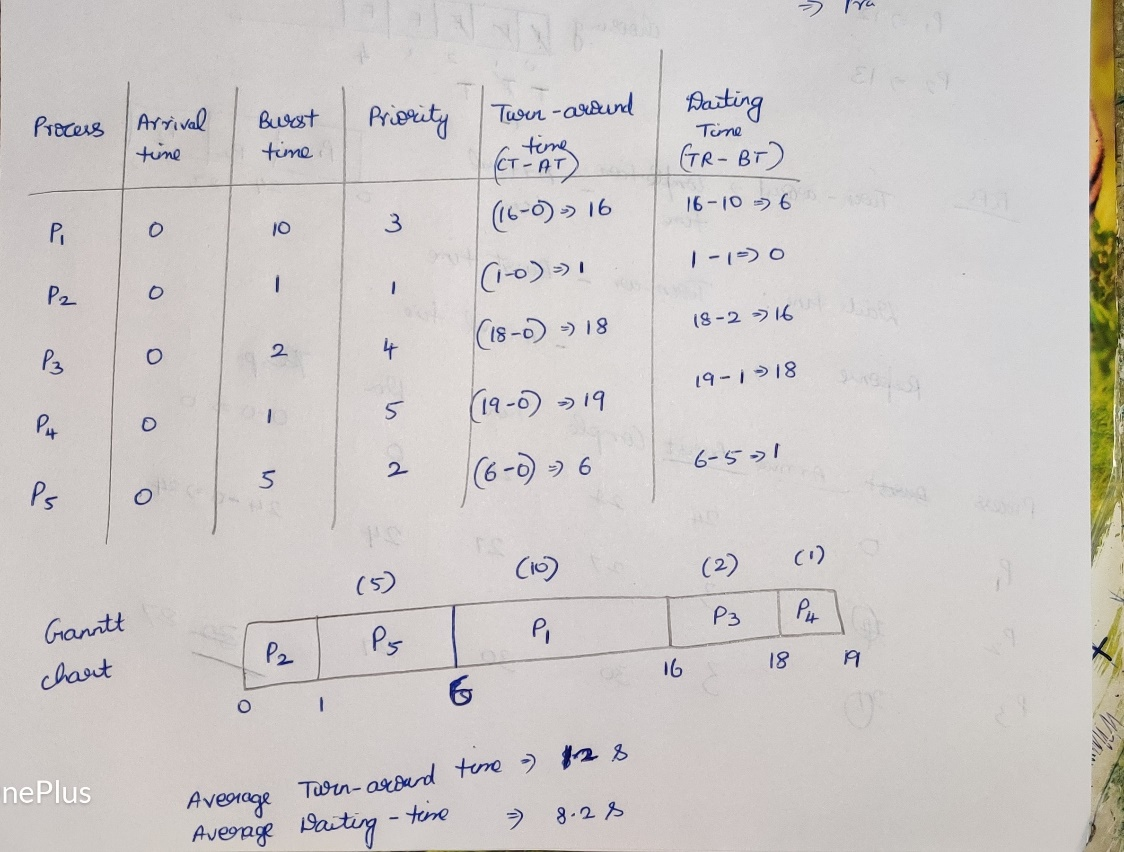 ⇒ Pra
Process Arrival time Burst time Priority Turn-around time (CT-AT) Waiting Time (TR-BT)
P1 0 10 3 (16-0) ⇒ 16 16-10 ⇒ 6
P2 0 1 1 (1-0) ⇒ 1 1-1 ⇒ 0
P3 0 2 4 (18-0) ⇒ 18 18-2 ⇒ 16
P4 0 1 5 (19-0) ⇒ 19 19-1 ⇒ 18
P5 0 5 2 (6-0) ⇒ 6 6-5 ⇒ 1
(5) (10) (2) (1)
Ganntt chart P2 P5 P1 P3 P4
0 1 6 16 18 19
Average Turn-around time ⇒ 12 s
Average Waiting-time ⇒ 8.2 s
nePlus